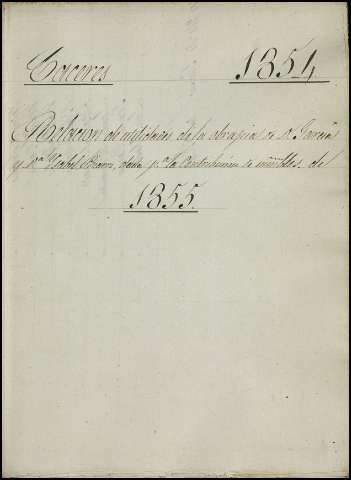 Caceres 1854
Relacion de utilidades de la obra pia de Dn. Garcia
y Dª Ysabel dada pª la Contribucion de inmuebles de
1855.